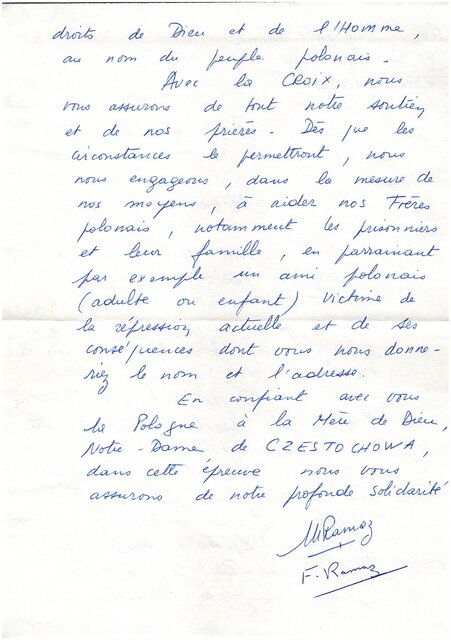 droits de Dieu et de l'Homme,
au nom du peuple polonais.
Avec la CROIX, nous
vous assurons de tout notre soutien
et de nos prières. Dès que les
circonstances le permettront, nous
nous engageons, dans la mesure de
nos moyens, à aider nos Frères
polonais, notamment les prisonniers
et leur famille, en parrainant
par exemple un ami polonais
(adulte ou enfant) victime de
la répression actuelle et de ses
conséquences dont vous nous donne-
riez le nom et l'adresse.
En confiant avec vous
la Pologne à la Mère de Dieu,
Notre-Dame de CZESTOCHOWA,
dans cette épreuve nous vous
assurons de notre profonde solidarité
MRamaz
F. Ramaz